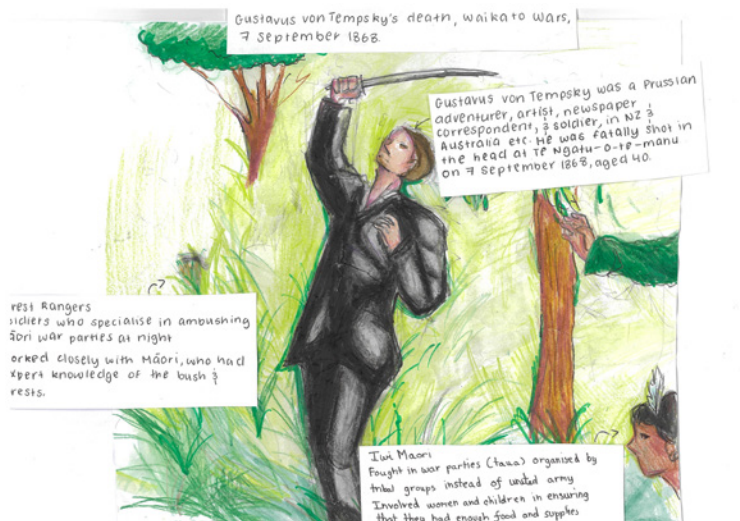 Gustavus von Tempsky's death, Waikato Wars,
7 September 1868.
Gustavus von Tempsky was a Prussian
adventurer, artist, newspaper
correspondent, & soldier, in NZ &
Australia etc. He was fatally shot in
the head at Te Ngatu-o-te-manu
on 7 September 1868, aged 40.
rest Rangers
oldiers who specialise in ambushing
āori war parties at night
orked closely with Māori, who had
xpert knowledge of the bush &
rests.
Iwi Maori
Fought in war parties (taua) organised by
tribal groups instead of united army
Involved women and children in ensuring
that they had enough food and supplies